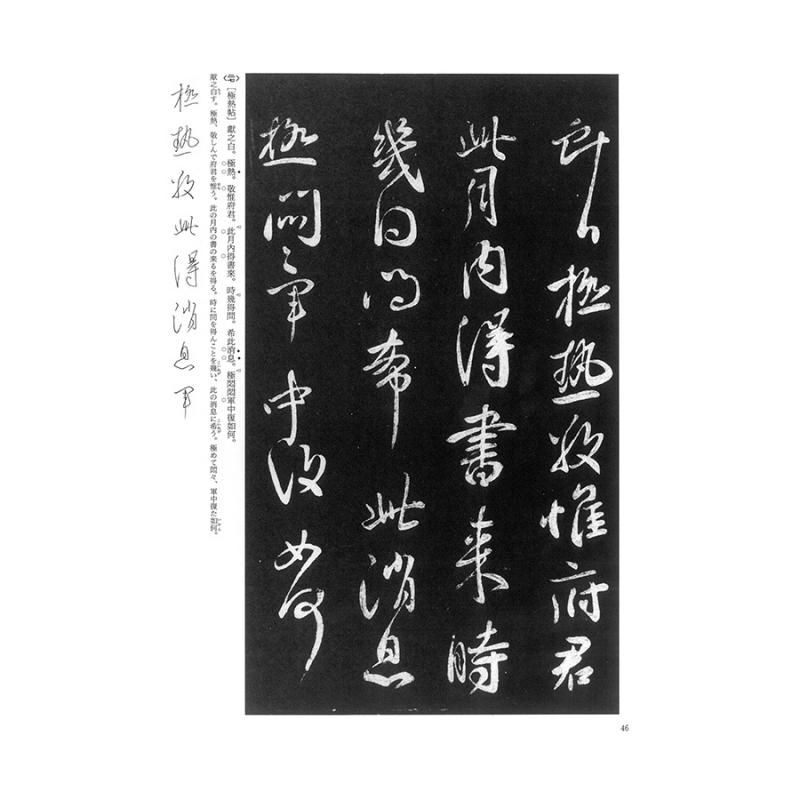 献之白極熱敬惟府君
此月内得書来時
幾得問希此消息
極悶〻軍中復如何
[極熱帖] 献之白。極熱。敬惟府君。此月内得書來。時幾得問。希此消息。極悶悶軍中復如何。
献之白す。極熱、敬しんで府君を惟う。此の月内の書の来るを得る。時に問を得んことを幾い、此の消息に希う。極めて悶々、軍中復た如何。
極熱敬此得消息軍
46